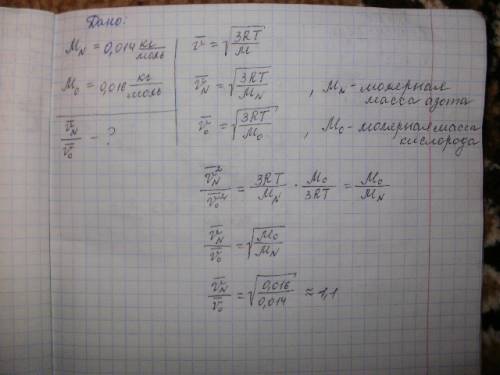 Дано:
M_N = 0,014 кг/моль
M_O = 0,016 кг/моль
v̄_N/v̄_O - ?
v̄ = √(3RT/M)
v̄_N = √(3RT/M_N) , M_N - молярная масса азота
v̄_O = √(3RT/M_O) , M_O - молярная масса кислорода
v̄_N²/v̄_O² = 3RT/M_N · M_O/3RT = M_O/M_N
v̄_N/v̄_O = √(M_O/M_N)
v̄_N/v̄_O = √(0,016/0,014) ≈ 1,1